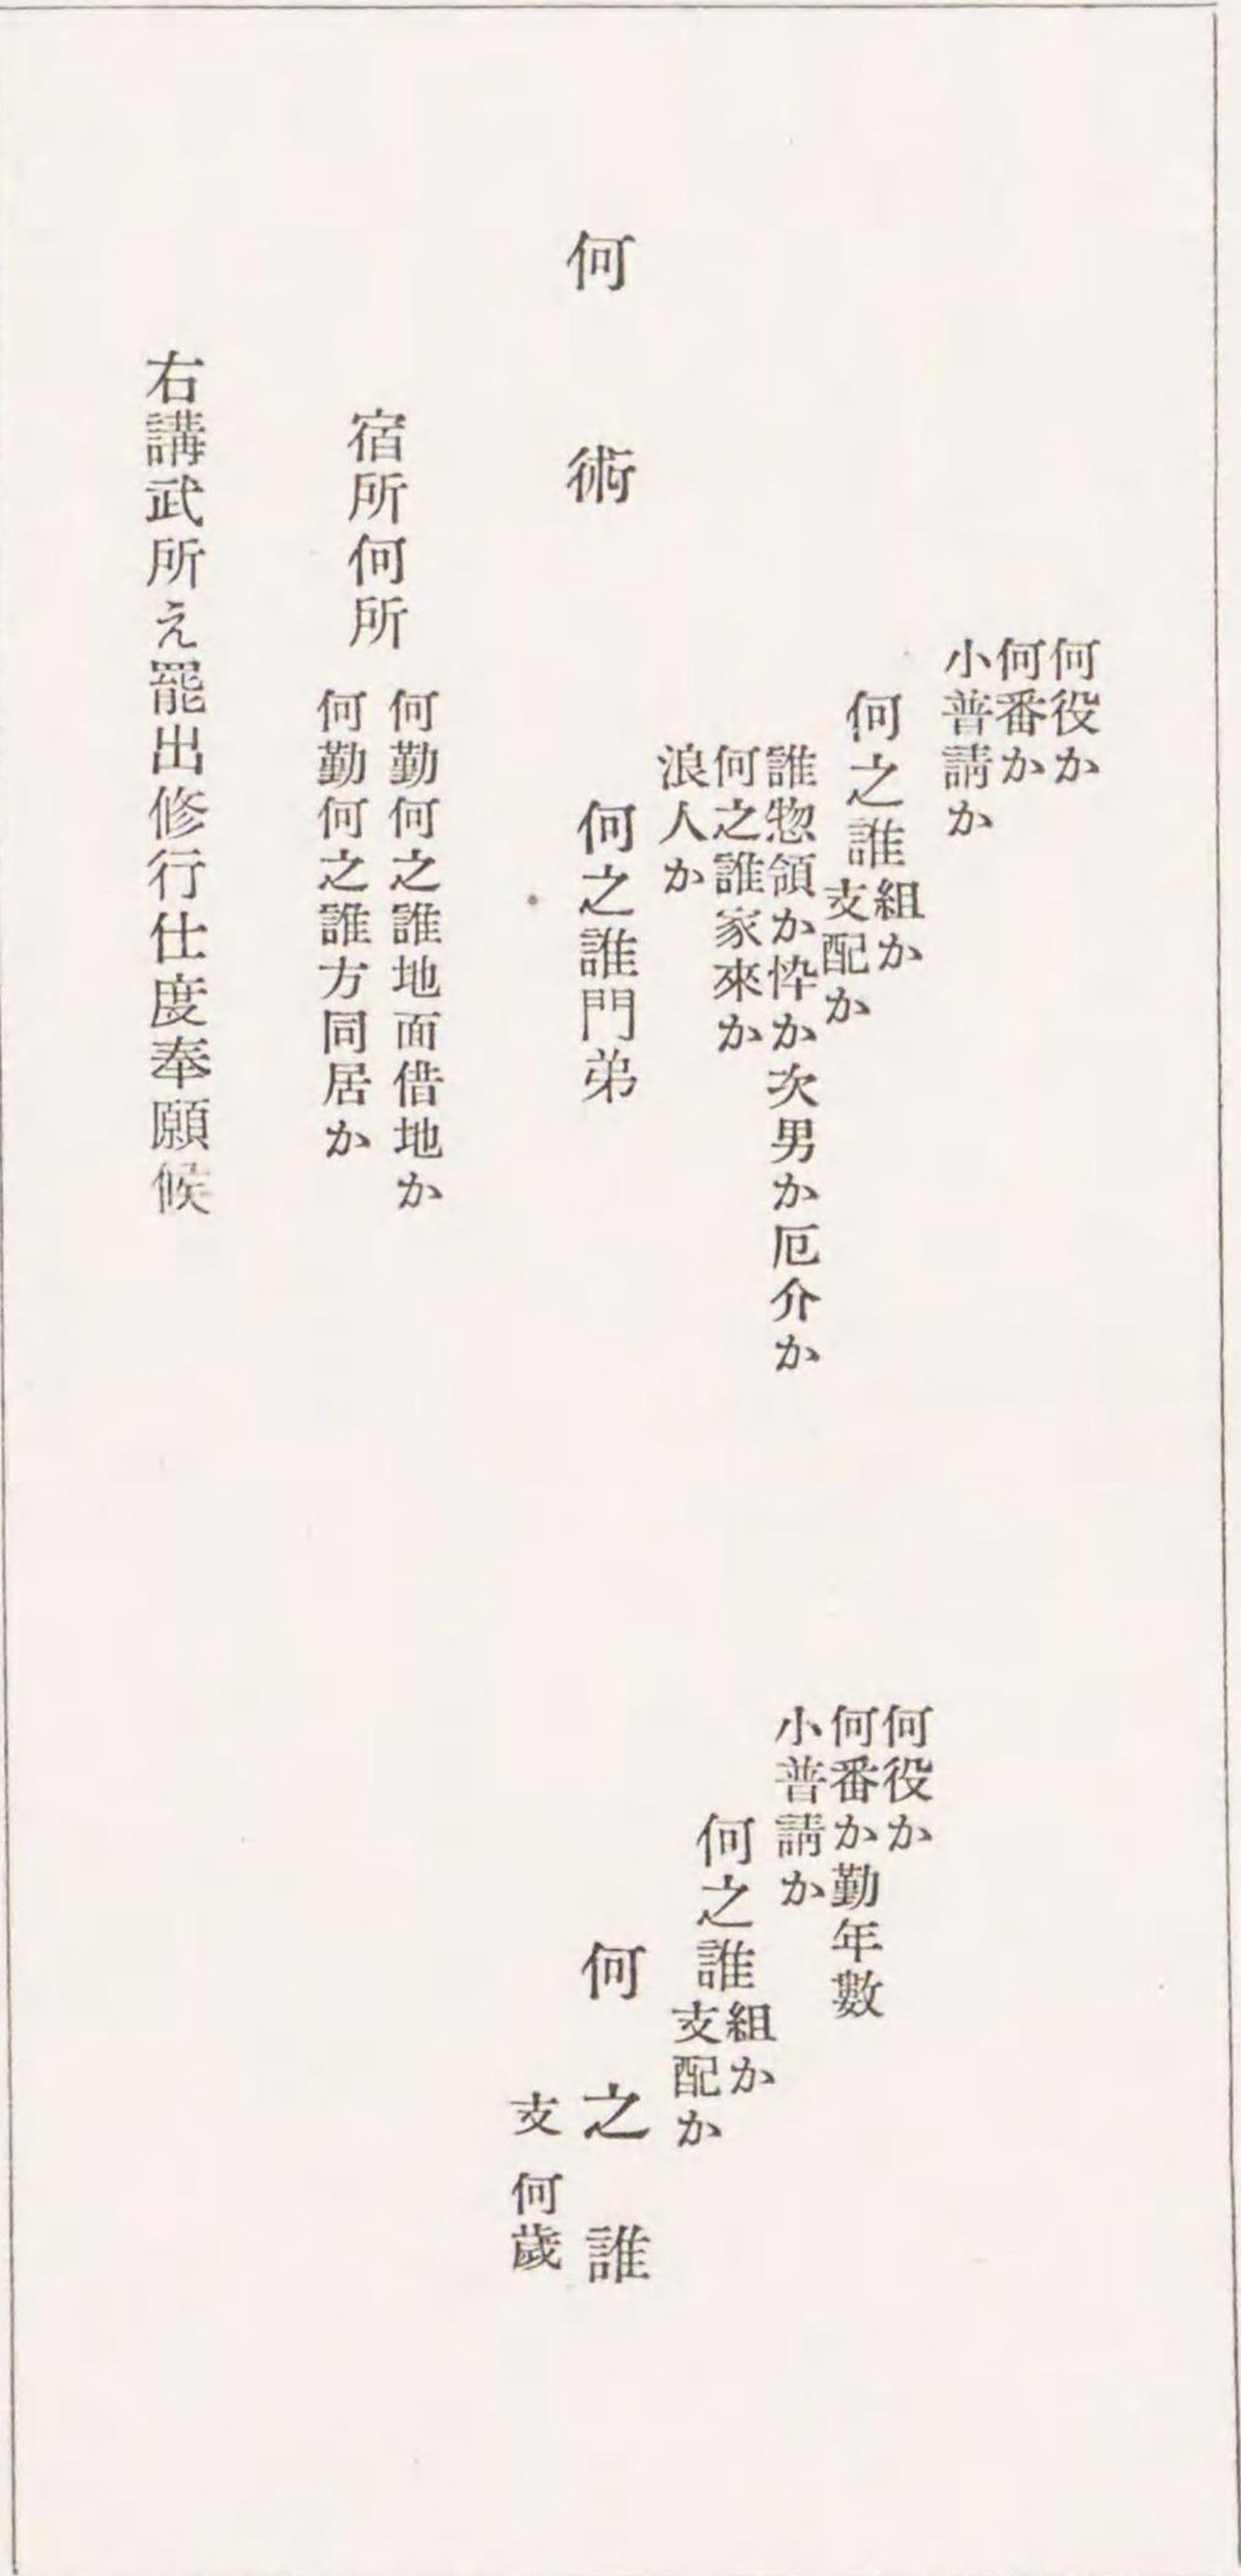 何役か
何番か
小普請か
何之誰組か
支配か
誰惣領か忰か次男か厄介か
何之誰家來か
浪人か
何術
何之誰門弟
何役か
何番か勤年數
小普請か
何之誰組か
支配か
何之誰
支何歲
宿所何所
何勤何之誰地面借地か
何勤何之誰方同居か
右講武所え罷出修行仕度奉願候